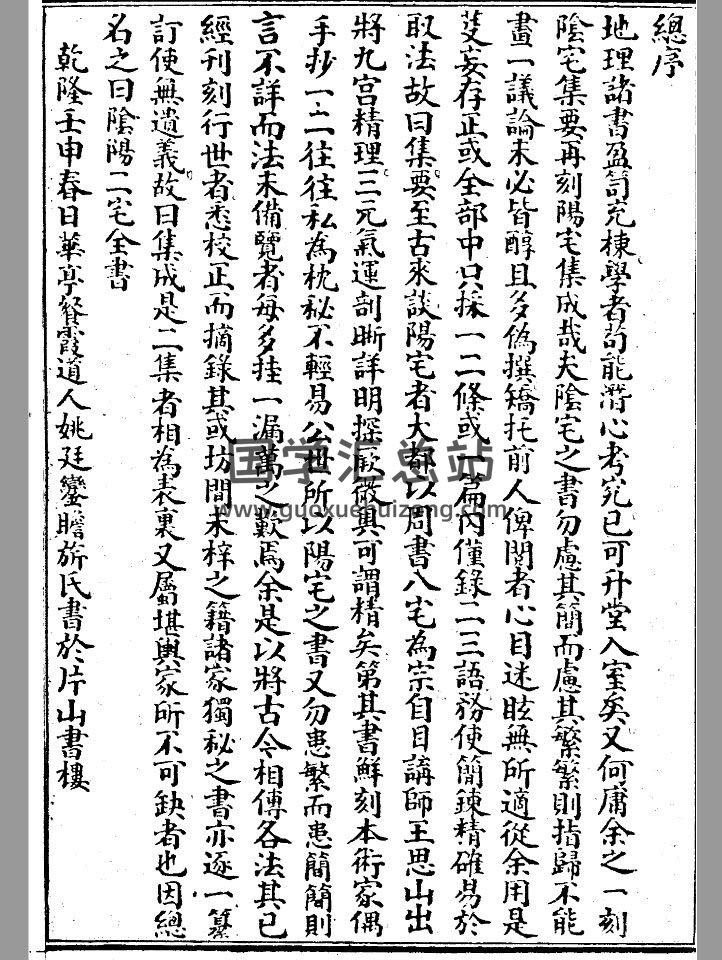 總序
地理諸書盈笥充棟學者苟能潛心考究已可升堂入室矣又何庸余之一刻
陰宅集要再刻陽宅集成哉夫陰宅之書勿慮其簡而慮其繁繁則指歸不能
畫一議論未必皆醇且多偽撰矯托前人俾閱者心目迷眩無所適從余用是
芟妄存正或全部中只採一二條或一篇內僅錄二三語務使簡鍊精確易於
取法故曰集要至古來談陽宅者大都以周書八宅為宗自目講師王思山出
將九宮精理三元氣運剖晰詳明探厥微奧可謂精矣第其書鮮刻本術家偶
手抄一二往往私為枕秘不輕易公世所以陽宅之書又勿患繁而患簡簡則
言不詳而法未備覽者每多挂一漏萬之歎焉余是以將古今相傳各法其已
經刊刻行世者悉校正而摘錄其或坊間未梓之籍諸家獨秘之書亦逐一纂
訂使無遺義故曰集成是二集者相為表裏又屬堪輿家所不可缺者也因總
名之曰陰陽二宅全書
乾隆壬申春日華亭餐霞道人姚廷鑾瞻旂氏書於片山書樓
国学汇总站
www.guoxuehuizong.com